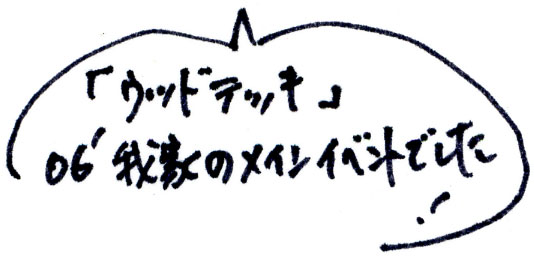 「ウッドデッキ」
06' 我家のメインイベントでした
!